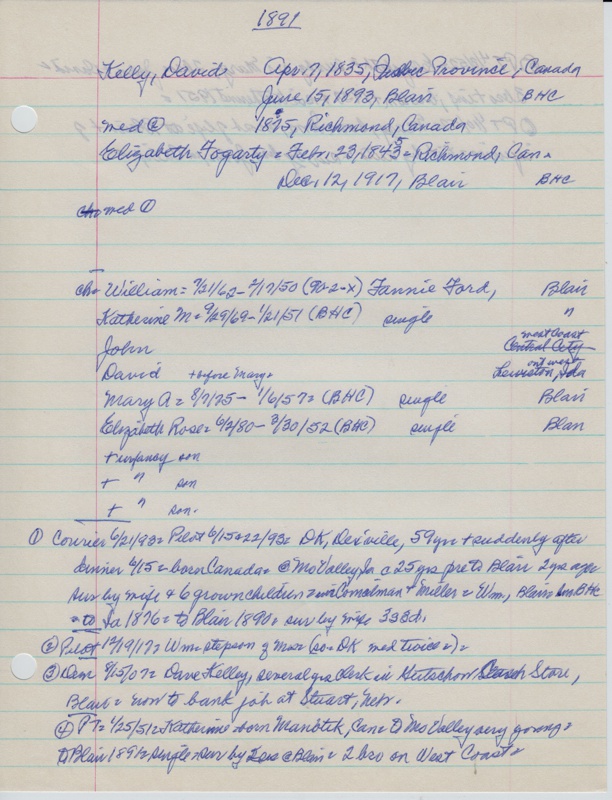 1891
Kelly, David Apr 7, 1835, Quebec Province, Canada
June 15, 1893, Blair BHC
med ② 1875, Richmond, Canada
Elizabeth Fogarty = Febr. 23, 1843 = Richmond, Can.
Dec. 12, 1917, Blair BHC
med ①
ch = William = 7/21/62 - 2/17/50 (90-2-x) Fannie Ford, Blair
Katherine M = 9/29/69 - 1/21/51 (BHC) single "
John West Coast Central City
David + before Mary + out west Lewiston, Ida
Mary A = 8/7/75 - 1/6/57 = (BHC) single Blair
Elizabeth Rose = 6/2/80 - 3/30/52 (BHC) single Blair
+ infancy son
+ " son
+ " son.
① Courier 6/21/93 = Pilot 6/15+22/93 = DK, DeSville, 59 yrs + suddenly after
dinner 6/15 = born Canada = @ Mo Valley Ia c 25 yrs pre to Blair 2 yrs ago
sur by wife + 6 grown children = Comelman + Miller = Wm, Blair = BHC
= to Ia 1876 = to Blair 1890 = sur by wife 3s 3d.
② Pilot 12/19/17 = Wm = stepson of Mrs = (so = DK med twice) =
③ Dem 8/15/07 = Dave Kelly, several yrs clerk in Gutschow Store,
Blair = now to bank job at Stuart, Nebr.
④ PT = 1/25/51 = Katherine = born Manotik, Can = to Mo Valley very young =
to Blair 1891 = single = sur by @ Blair = 2 bro on West Coast =